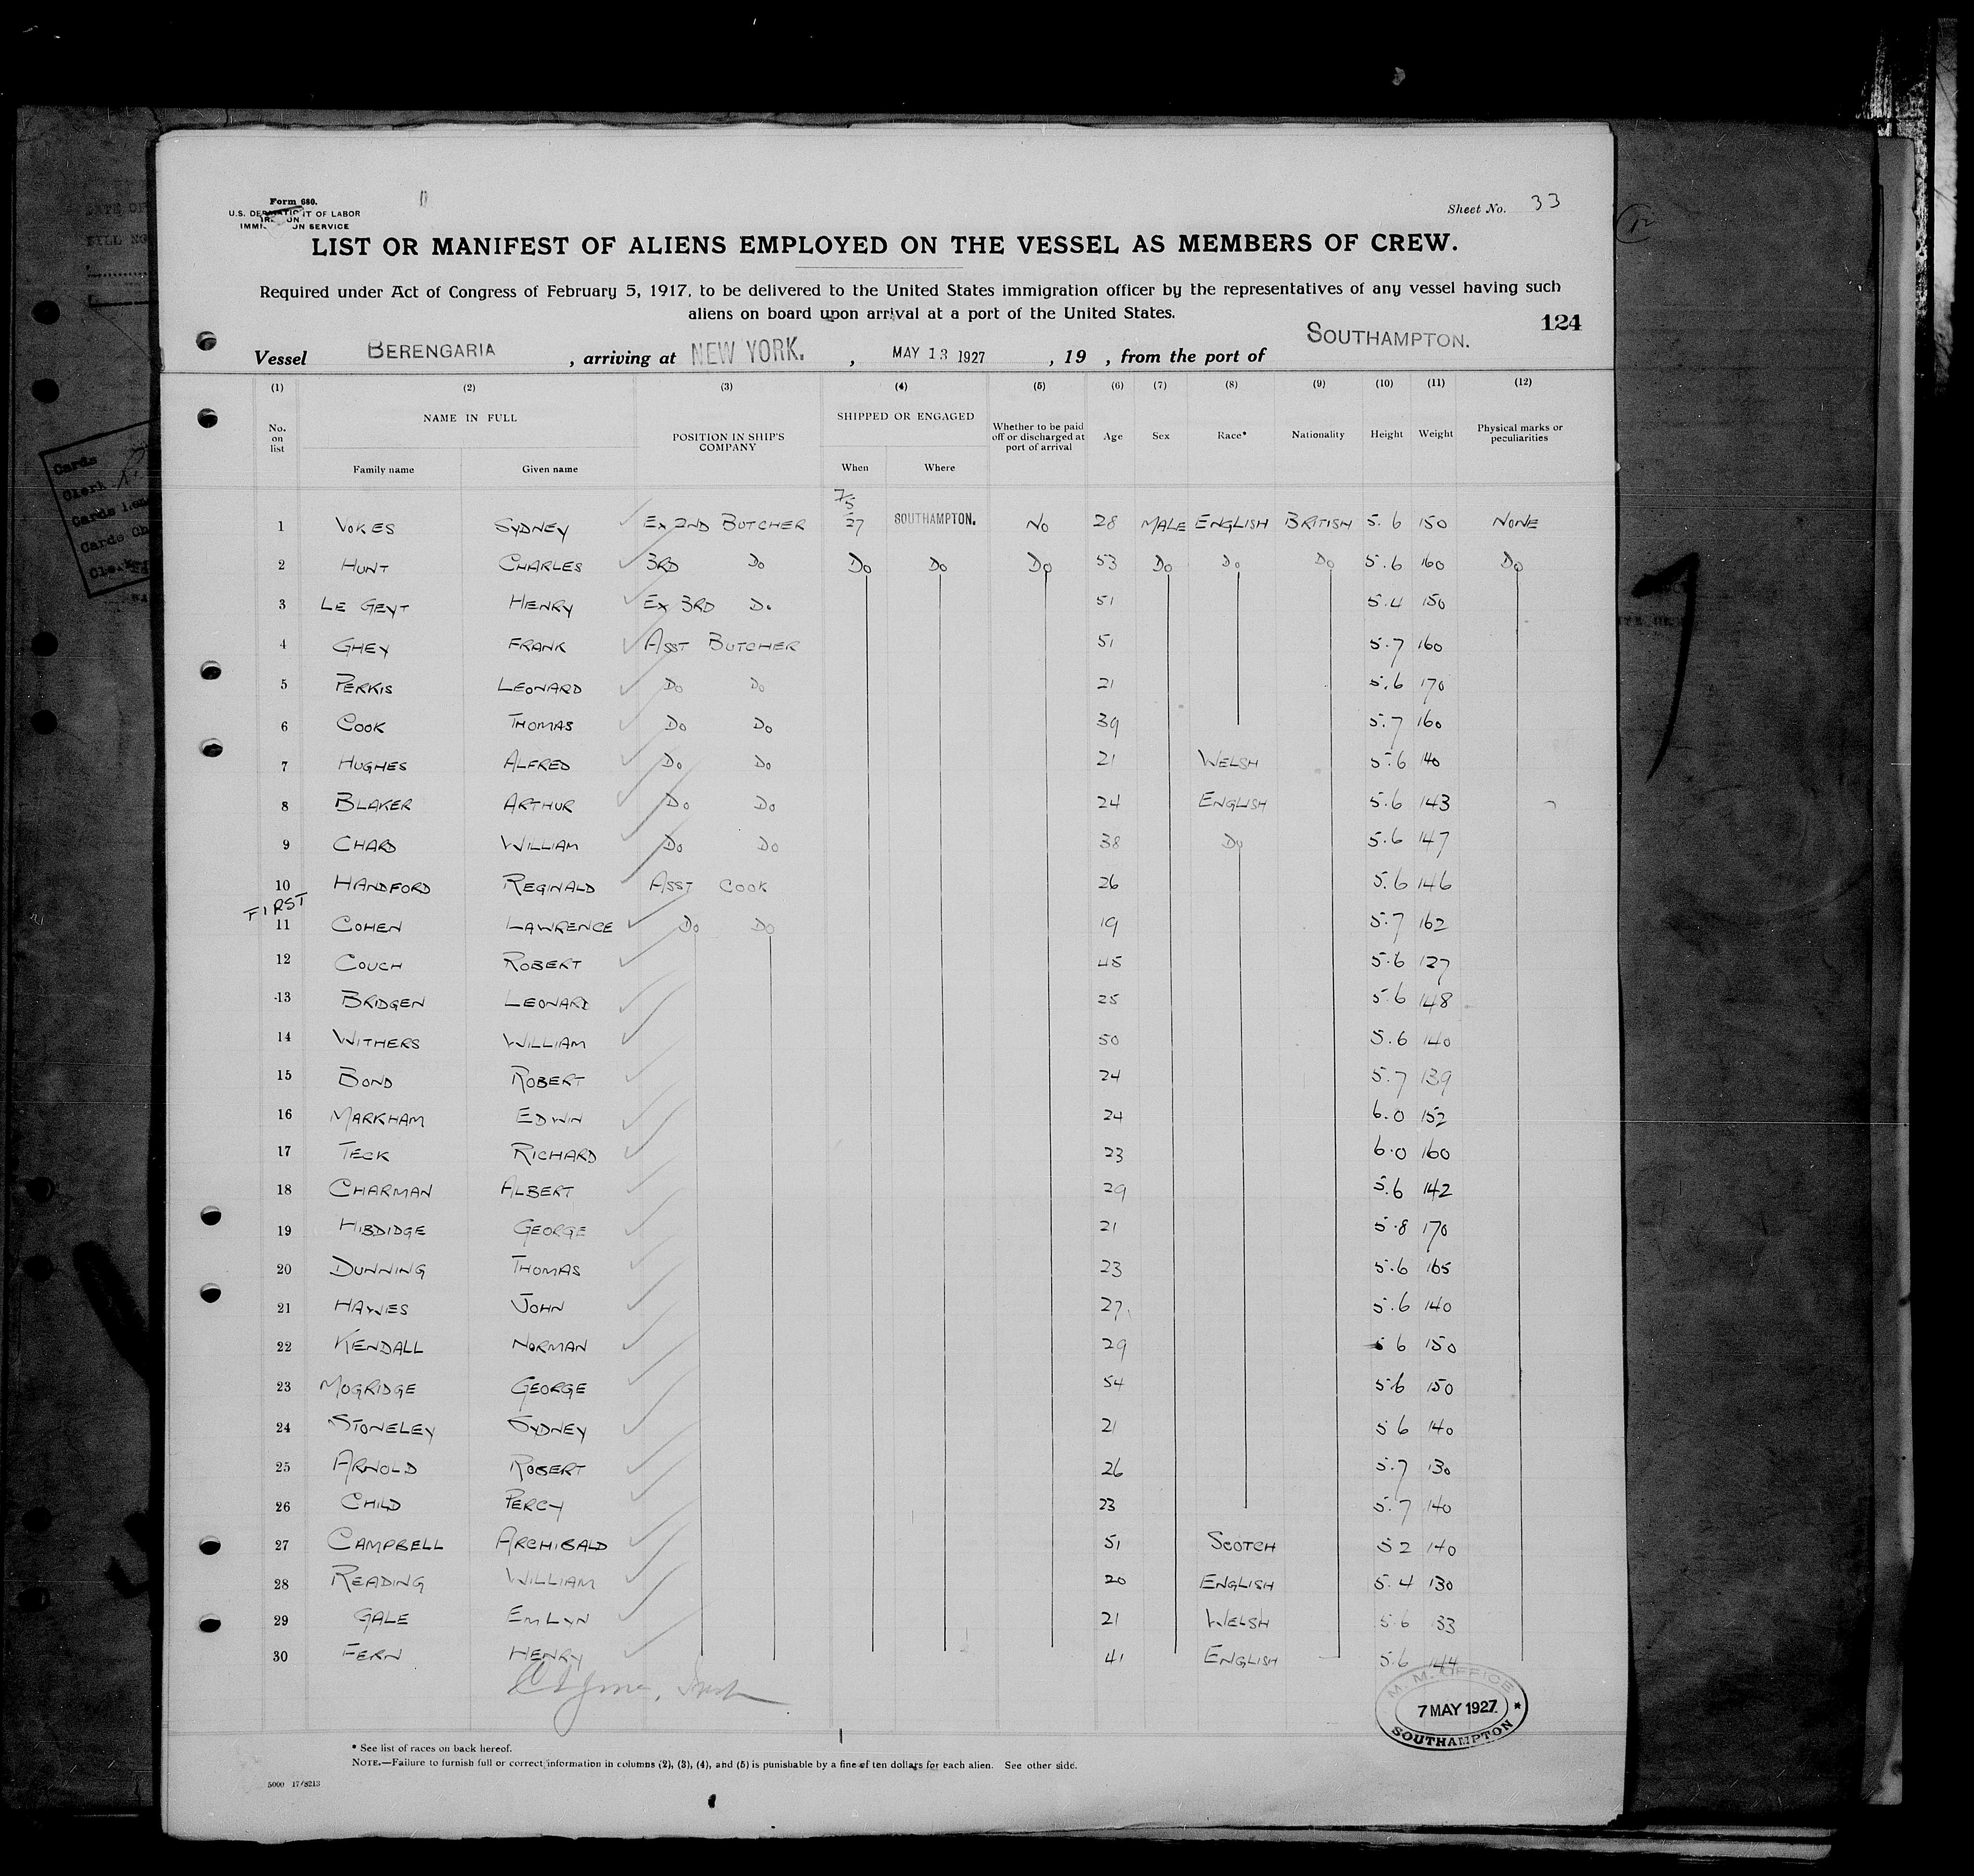 Form 680.
U.S. DEPARTMENT OF LABOR
IMMIGRATION SERVICE
Sheet No. 33
LIST OR MANIFEST OF ALIENS EMPLOYED ON THE VESSEL AS MEMBERS OF CREW.
Required under Act of Congress of February 5, 1917, to be delivered to the United States immigration officer by the representatives of any vessel having such
aliens on board upon arrival at a port of the United States.
124
Vessel BERENGARIA , arriving at NEW YORK. , MAY 13 1927 , 19 , from the port of SOUTHAMPTON.
(1) (2) (3) (4) (5) (6) (7) (8) (9) (10) (11) (12)
No. on list NAME IN FULL Family name Given name POSITION IN SHIP'S COMPANY SHIPPED OR ENGAGED When Where Whether to be paid off or discharged at port of arrival Age Sex Race* Nationality Height Weight Physical marks or peculiarities
1 VOKES SYDNEY EX 2ND BUTCHER 7/5/27 SOUTHAMPTON. NO 28 MALE ENGLISH BRITISH 5.6 150 NONE
2 HUNT CHARLES 3RD DO DO DO DO 53 DO DO DO 5.6 160 DO
3 LE GEYT HENRY EX 3RD DO 51 5.4 150
4 GHEY FRANK ASST BUTCHER 51 5.7 160
5 PERKIS LEONARD DO DO 21 5.6 170
6 COOK THOMAS DO DO 39 5.7 160
7 HUGHES ALFRED DO DO 21 WELSH 5.6 140
8 BLAKER ARTHUR DO DO 24 ENGLISH 5.6 143
9 CHARD WILLIAM DO DO 38 DO 5.6 147
10 HANDFORD REGINALD ASST COOK 26 5.6 146
FIRST
11 COHEN LAWRENCE DO DO 19 5.7 162
12 COUCH ROBERT 45 5.6 137
13 BRIDGEN LEONARD 25 5.6 148
14 WITHERS WILLIAM 50 5.6 140
15 BOND ROBERT 24 5.7 139
16 MARKHAM EDWIN 24 6.0 152
17 TECK RICHARD 23 6.0 160
18 CHARMAN ALBERT 29 5.6 142
19 HIBDIDGE GEORGE 21 5.8 170
20 DUNNING THOMAS 23 5.6 165
21 HAWES JOHN 27 5.6 140
22 KENDALL NORMAN 29 5 6 150
23 MOGRIDGE GEORGE 54 5 6 150
24 STONELEY SYDNEY 21 5 6 140
25 ARNOLD ROBERT 26 5.7 130
26 CHILD PERCY 23 5.7 140
27 CAMPBELL ARCHIBALD 51 SCOTCH 5 2 140
28 READING WILLIAM 20 ENGLISH 5.4 130
29 GALE EMLYN 21 WELSH 5 6 133
30 FERN HENRY 41 ENGLISH 5.6 144
M. M. OFFICE
7 MAY 1927
SOUTHAMPTON
* See list of races on back hereof.
NOTE.—Failure to furnish full or correct information in columns (2), (3), (4), and (5) is punishable by a fine of ten dollars for each alien. See other side.
5000 17/8213